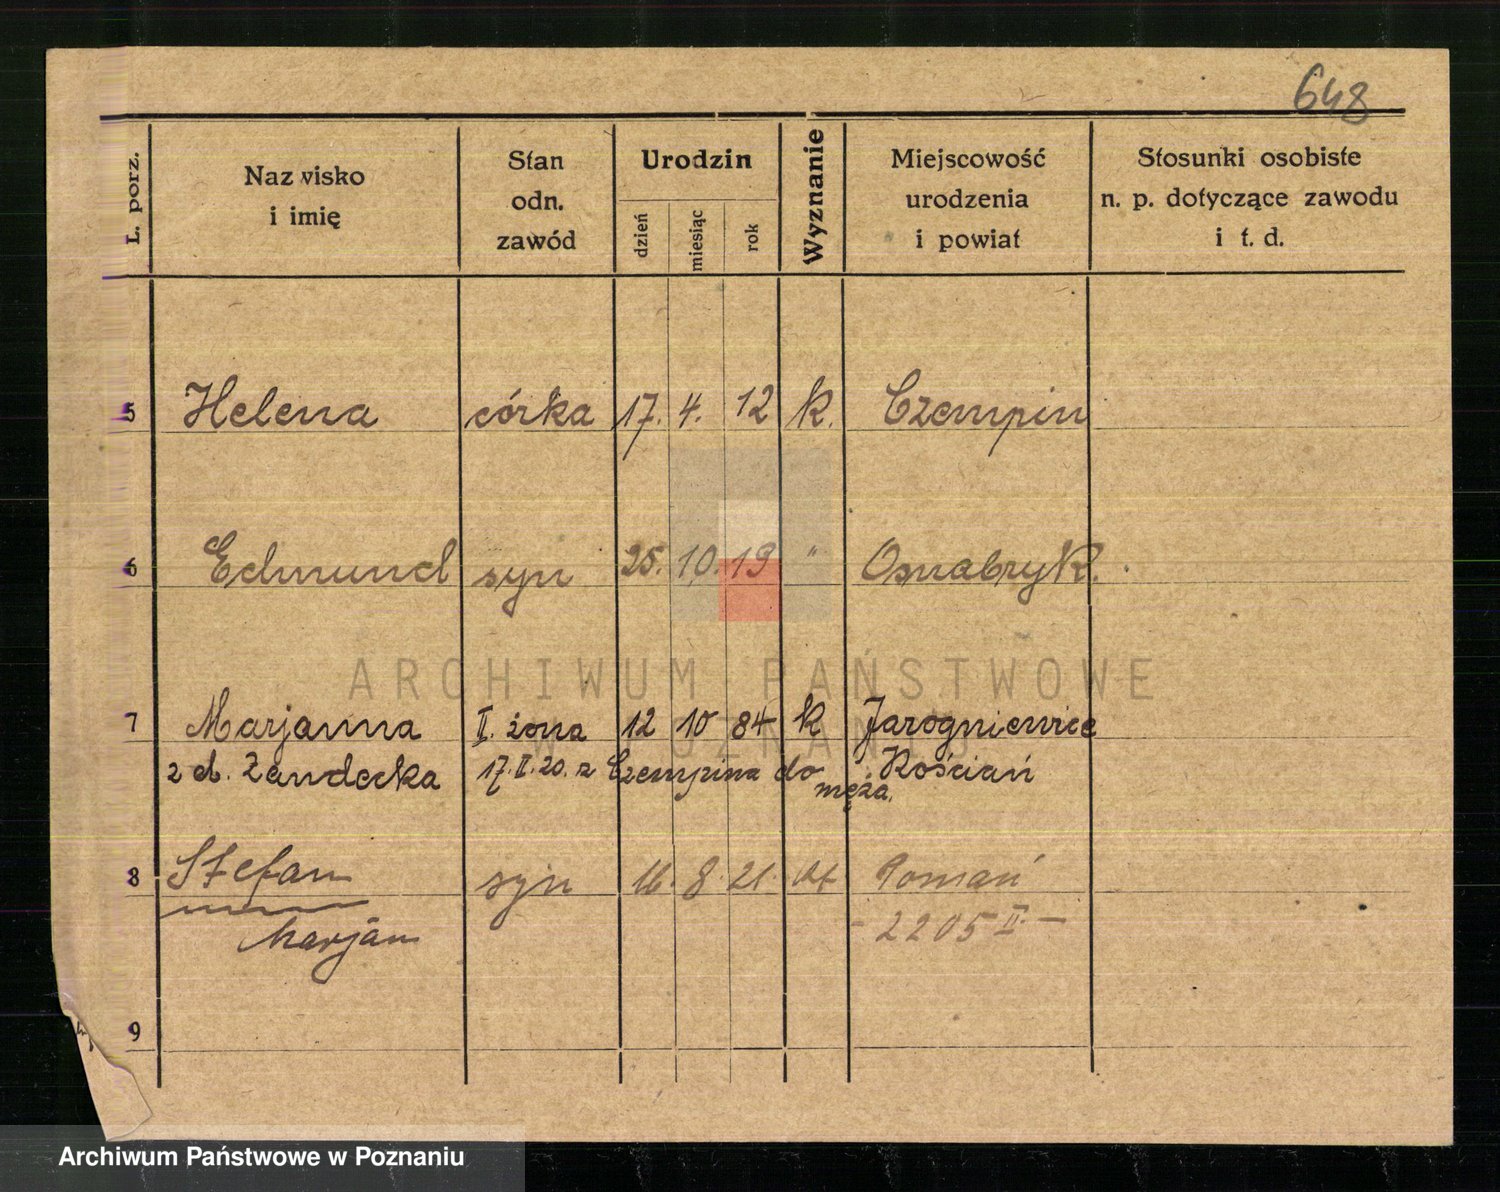 648
L. porz.
Nazwisko
i imię
Stan
odn.
zawód
Urodzin
dzień
miesiąc
rok
Wyznanie
Miejscowość
urodzenia
i powiat
Stosunki osobiste
n. p. dotyczące zawodu
i t. d.
5 Helena córka 17. 4. 12 k. Czempin
6 Edmund syn 25. 10. 19 " Osnabryk.
ARCHIWUM PAŃSTWOWE
W POZNANIU
7 Marjanna II. żona 12 10 84 k Jarogniewice
z d. Żandecka 17.II.20. z Czempina do męża. Kościań
8 Stefan syn 16. 8. 21. kt Poznań
Marjan - 2205 II. -
9
Archiwum Państwowe w Poznaniu